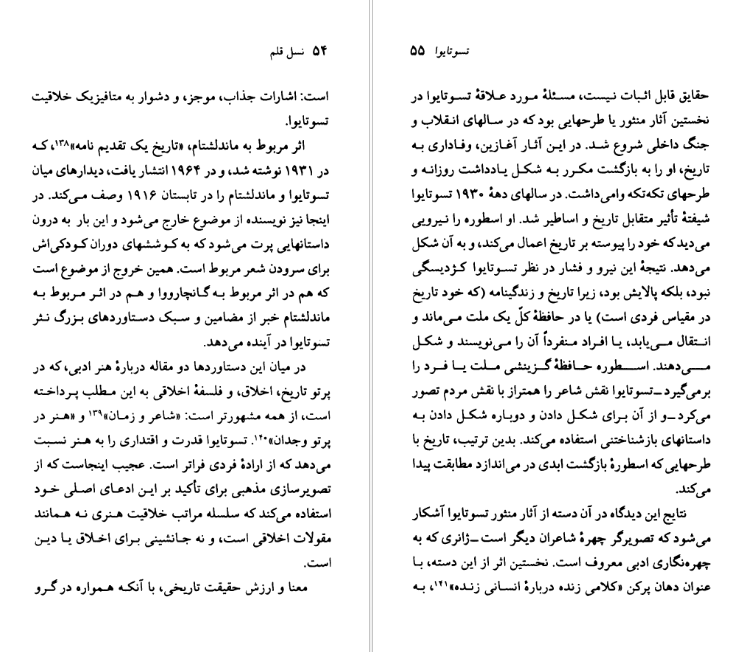 ۵۴ نسل قلم
است: اشارات جذاب، موجز، و دشوار به متافیزیک خلاقیت
تسوتایوا.
اثر مربوط به ماندلشتام، «تاریخ یک تقدیم نامه»۱۳۸، که
در ۱۹۳۱ نوشته شد، و در ۱۹۶۴ انتشار یافت، دیدارهای میان
تسوتایوا و ماندلشتام را در تابستان ۱۹۱۶ وصف می‌کند. در
اینجا نیز نویسنده از موضوع خارج می‌شود و این بار به درون
داستانهایی پرت می‌شود که به کوششهای دوران کودکی‌اش
برای سرودن شعر مربوط است. همین خروج از موضوع است
که هم در اثر مربوط به گانچارووا و هم در اثر مربوط به
ماندلشتام خبر از مضامین و سبک دستاوردهای بزرگ نثر
تسوتایوا در آینده می‌دهد.
در میان این دستاوردها دو مقاله دربارهٔ هنر ادبی، که در
پرتو تاریخ، اخلاق، و فلسفهٔ اخلاقی به این مطلب پرداخته
است، از همه مشهورتر است: «شاعر و زمان»۱۳۹ و «هنر در
پرتو وجدان»۱۴۰. تسوتایوا قدرت و اقتداری را به هنر نسبت
می‌دهد که از ارادهٔ فردی فراتر است. عجیب اینجاست که از
تصویرسازی مذهبی برای تأکید بر این ادعای اصلی خود
استفاده می‌کند که سلسله مراتب خلاقیت هنری نه همانند
مقولات اخلاقی است، و نه جانشینی برای اخلاق یا دین
است.
معنا و ارزش حقیقت تاریخی، با آنکه همواره در گرو
تسوتایوا ۵۵
حقایق قابل اثبات نیست، مسئلهٔ مورد علاقهٔ تسوتایوا در
نخستین آثار منثور یا طرحهایی بود که در سالهای انقلاب و
جنگ داخلی شروع شد. در این آثار آغازین، وفاداری به
تاریخ، او را به بازگشت مکرر به شکل یادداشت روزانه و
طرحهای تکه‌تکه وامی‌داشت. در سالهای دههٔ ۱۹۳۰ تسوتایوا
شیفتهٔ تأثیر متقابل تاریخ و اساطیر شد. او اسطوره را نیرویی
می‌دید که خود را پیوسته بر تاریخ اعمال می‌کند، و به آن شکل
می‌دهد. نتیجهٔ این نیرو و فشار در نظر تسوتایوا کژدیسگی
نبود، بلکه پالایش بود، زیرا تاریخ و زندگینامه (که خود تاریخ
در مقیاس فردی است) یا در حافظهٔ کلّ یک ملت می‌ماند و
انتقال می‌یابد، یا افراد منفرداً آن را می‌نویسند و شکل
می‌دهند. اسطوره حافظهٔ گزینشی ملت یا فرد را
برمی‌گیرد ـ تسوتایوا نقش شاعر را همتراز با نقش مردم تصور
می‌کرد ـ و از آن برای شکل دادن و دوباره شکل دادن به
داستانهای بازشناختنی استفاده می‌کند. بدین ترتیب، تاریخ با
طرحهایی که اسطورهٔ بازگشت ابدی در می‌اندازد مطابقت پیدا
می‌کند.
نتایج این دیدگاه در آن دسته از آثار منثور تسوتایوا آشکار
می‌شود که تصویرگر چهرهٔ شاعران دیگر است ـ ژانری که به
چهره‌نگاری ادبی معروف است. نخستین اثر از این دسته، با
عنوان دهان پرکن «کلامی زنده دربارهٔ انسانی زنده»۱۴۱، به